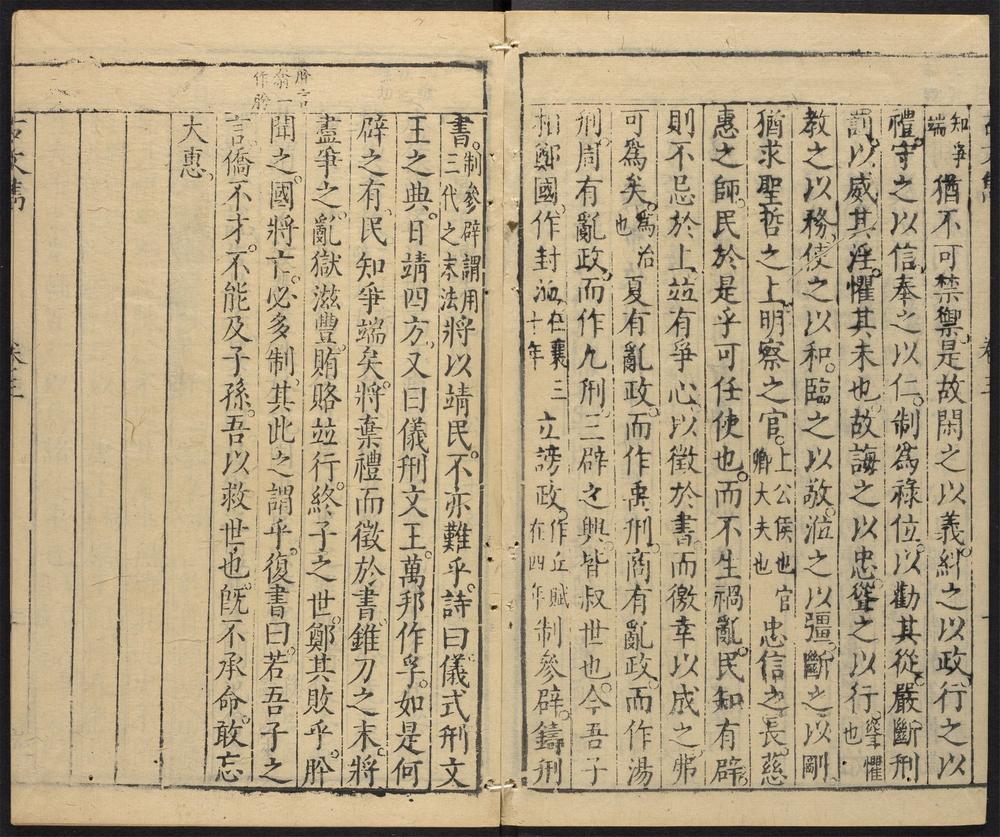 知爭端猶不可禁禦是故閑之以義。糾之以政。行之以
禮。守之以信。奉之以仁。制爲祿位。以勸其從。嚴斷刑
罰。以威其淫。懼其未也。故誨之以忠。聳之以行聳懼也
教之以務。使之以和。臨之以敬。涖之以彊。斷之以剛。
猶求聖哲之上。明察之官。上公侯也官卿大夫也忠信之長。慈
惠之師。民於是乎可任使也。而不生禍亂。民知有辟。
則不忌於上。並有爭心。以徵於書。而徼幸以成之。弗
可爲矣。爲治也夏有亂政。而作禹刑。商有亂政。而作湯
刑。周有亂政。而作九刑。三辟之興。皆叔世也。今吾子
相鄭國。作封洫。在襄三十年立謗政。作丘賦在四年制參辟。鑄刑
書。制參辟謂用三代之末法將以靖民。不亦難乎。詩曰。儀式刑文
王之典。日靖四方。又曰。儀刑文王。萬邦作孚。如是何
辟之有。民知爭端矣。將棄禮而徵於書。錐刀之末。將
盡爭之。亂獄滋豐。賄賂並行。終子之世。鄭其敗乎。肸
聞之。國將亡。必多制。其此之謂乎。復書曰。若吾子之
言。僑不才。不能及子孫。吾以救世也。既不承命。敢忘
大惠。
古文雋
卷三